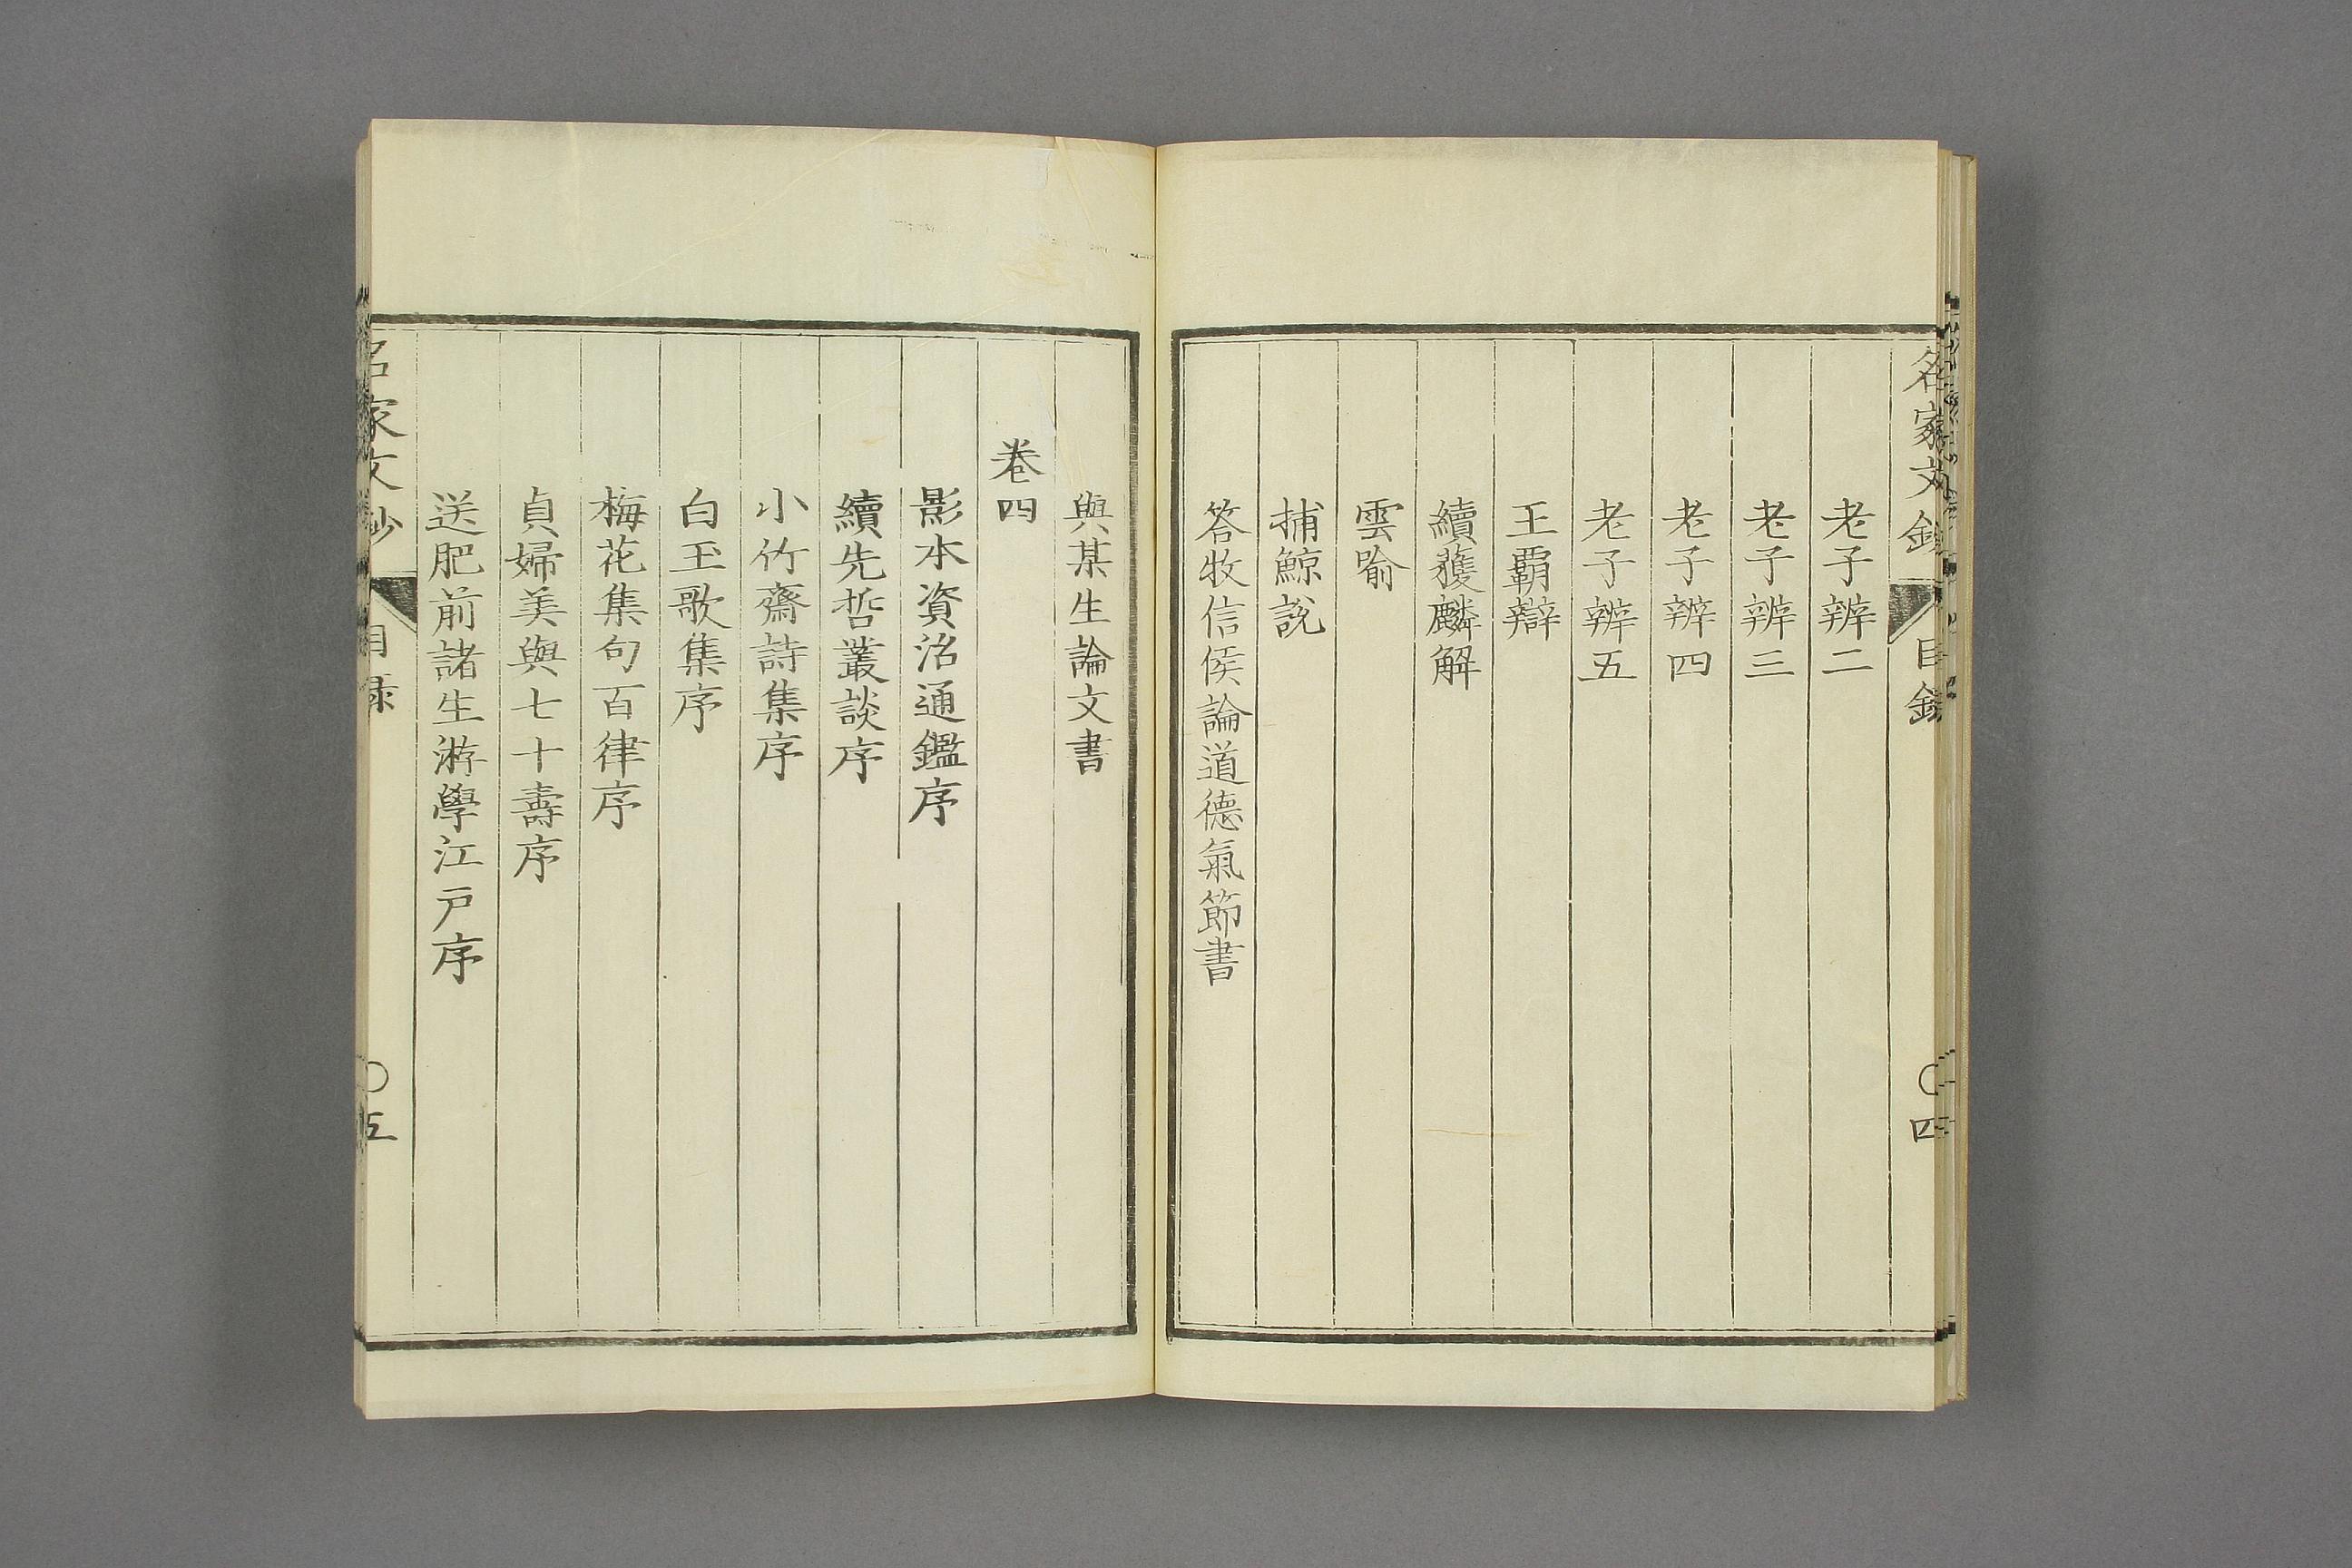 名家文鈔 目錄 〇四
老子辨二
老子辨三
老子辨四
老子辨五
王霸辯
續獲麟解
雲喻
捕鯨說
答牧信侯論道德氣節書
與某生論文書
卷四
影本資治通鑑序
續先哲叢談序
小竹齋詩集序
白玉歌集序
梅花集句百律序
貞婦美與七十壽序
送肥前諸生游學江戸序
名家文鈔 目錄 〇五